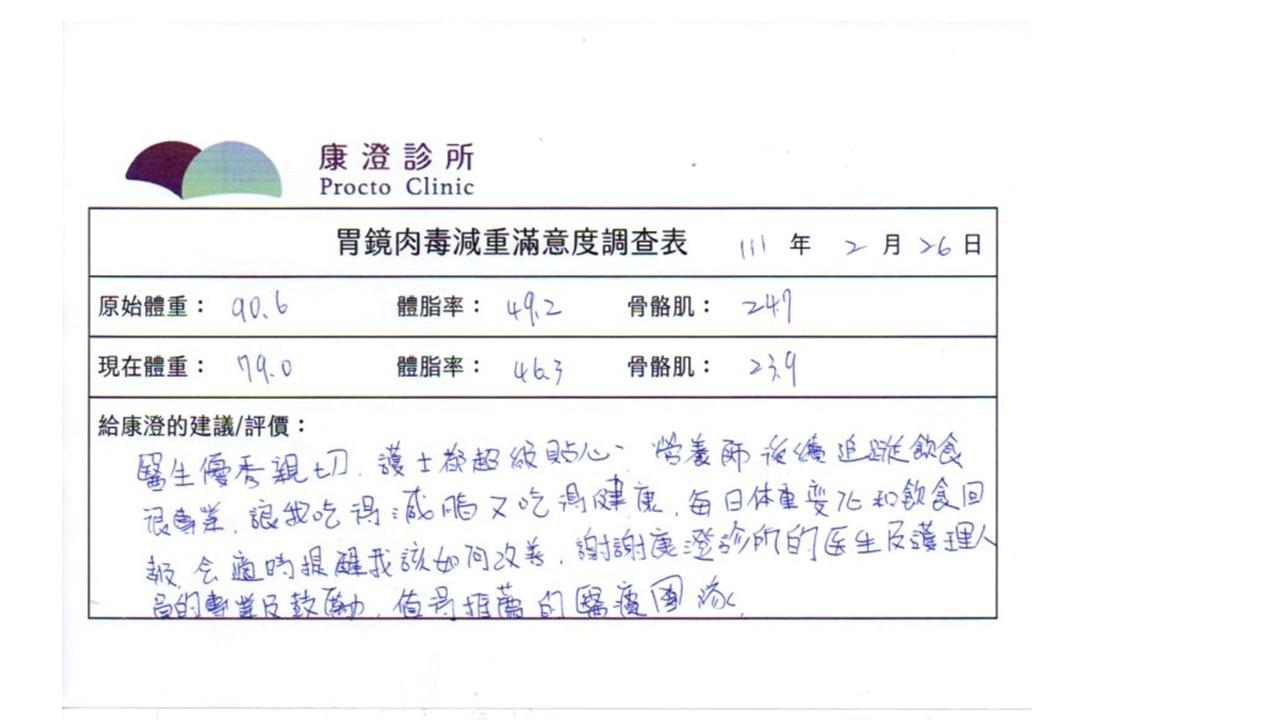 康澄診所
Procto Clinic
胃鏡肉毒減重滿意度調查表 111 年 2 月 26 日
原始體重： 90.6 體脂率： 49.2 骨骼肌： 24.7
現在體重： 79.0 體脂率： 46.3 骨骼肌： 23.9
給康澄的建議/評價：
醫生優秀親切、護士都超級貼心、營養師後續追蹤飲食
很專業，讓我吃得減脂又吃得健康，每日体重變化和飲食回
報，会適時提醒我該如何改善，謝謝康澄診所的医生及護理人
員的專業及鼓勵，值得推薦的醫療團隊。